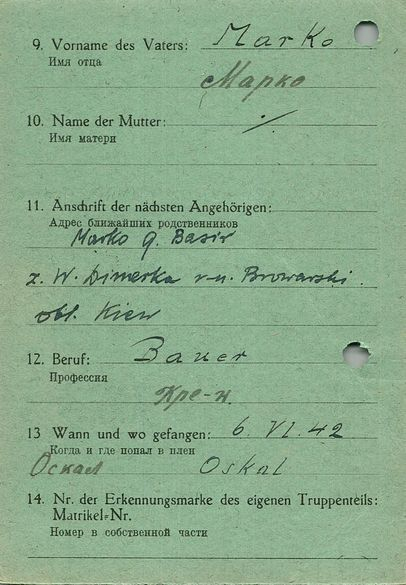 9. Vorname des Vaters: Marko
Имя отца
Марко
10. Name der Mutter: ⁒
Имя матери
11. Anschrift der nächsten Angehörigen:
Адрес ближайших родственников
Marko g. Basir
z. W. Dimerka r-n. Browarski.
obl. Kiew
12. Beruf: Bauer
Профессия
Кре-н.
13 Wann und wo gefangen: 6. VI. 42
Когда и где попал в плен
Оскал Oskal
14. Nr. der Erkennungsmarke des eigenen Truppenteils:
Matrikel-Nr.
Номер в собственной части